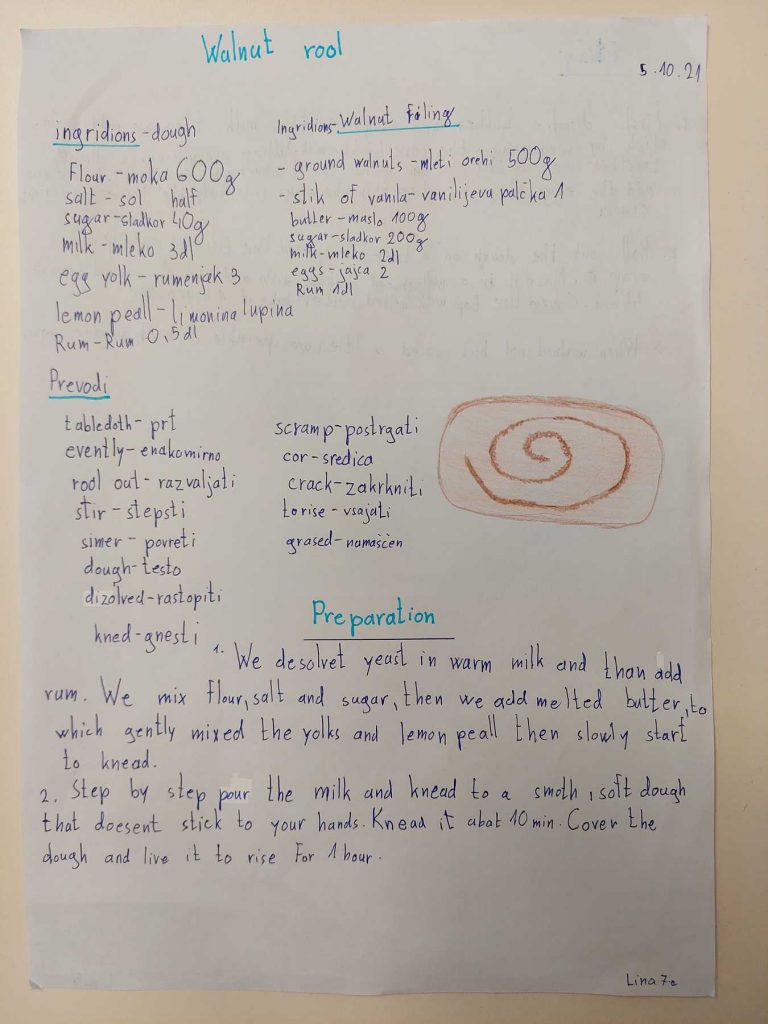 Walnut rool
5.10.21
ingridions-dough
Flour-moka 600g
salt-sol half
sugar-sladkor 40g
milk-mleko 3dl
egg yolk-rumenjak 3
lemon peall-limonina lupina
Rum-Rum 0,5dl
Ingridions-Walnut Filing
- ground walnuts-mleti orehi 500g
- stik of vanila-vanilijeva palčka 1
butter-maslo 100g
sugar-sladkor 200g
milk-mleko 2dl
eggs-jajca 2
Rum 1dl
Prevodi
tabledoth-prt
evently-enakomirno
rool out-razvaljati
stir-stepsti
simer-povreti
dough-testo
dizolved-rastopiti
kned-gnesti
scramp-postrgati
cor-sredica
crack-zakrkniti
to rise-vsajati
grased-namaščen
Preparation
1. We desolvet yeast in warm milk and than add
rum. We mix flour, salt and sugar, then we add melted butter, to
which gently mixed the yolks and lemon peall then slowly start
to knead.
2. Step by step pour the milk and knead to a smoth, soft dough
that doesent stick to your hands. Knead it abat 10 min. Cover the
dough and live it to rise For 1 hour.
Lina 7.a